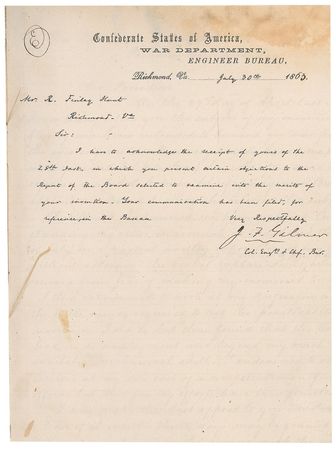 Confederate States of America,
WAR DEPARTMENT,
ENGINEER BUREAU,
Richmond, Va. July 30th 1863.
Mr. R. Finley Hunt
Richmond - Va
Sir:
I have to acknowledge the receipt of yours of the
28th Inst. in which you present certain objections to the
Report of the Board selected to examine into the merits of
your invention. Your communication has been filed, for
reference, in the Bureau
Very Respectfully
J. F. Gilmer
Col. Engrs & Chf. Bur.